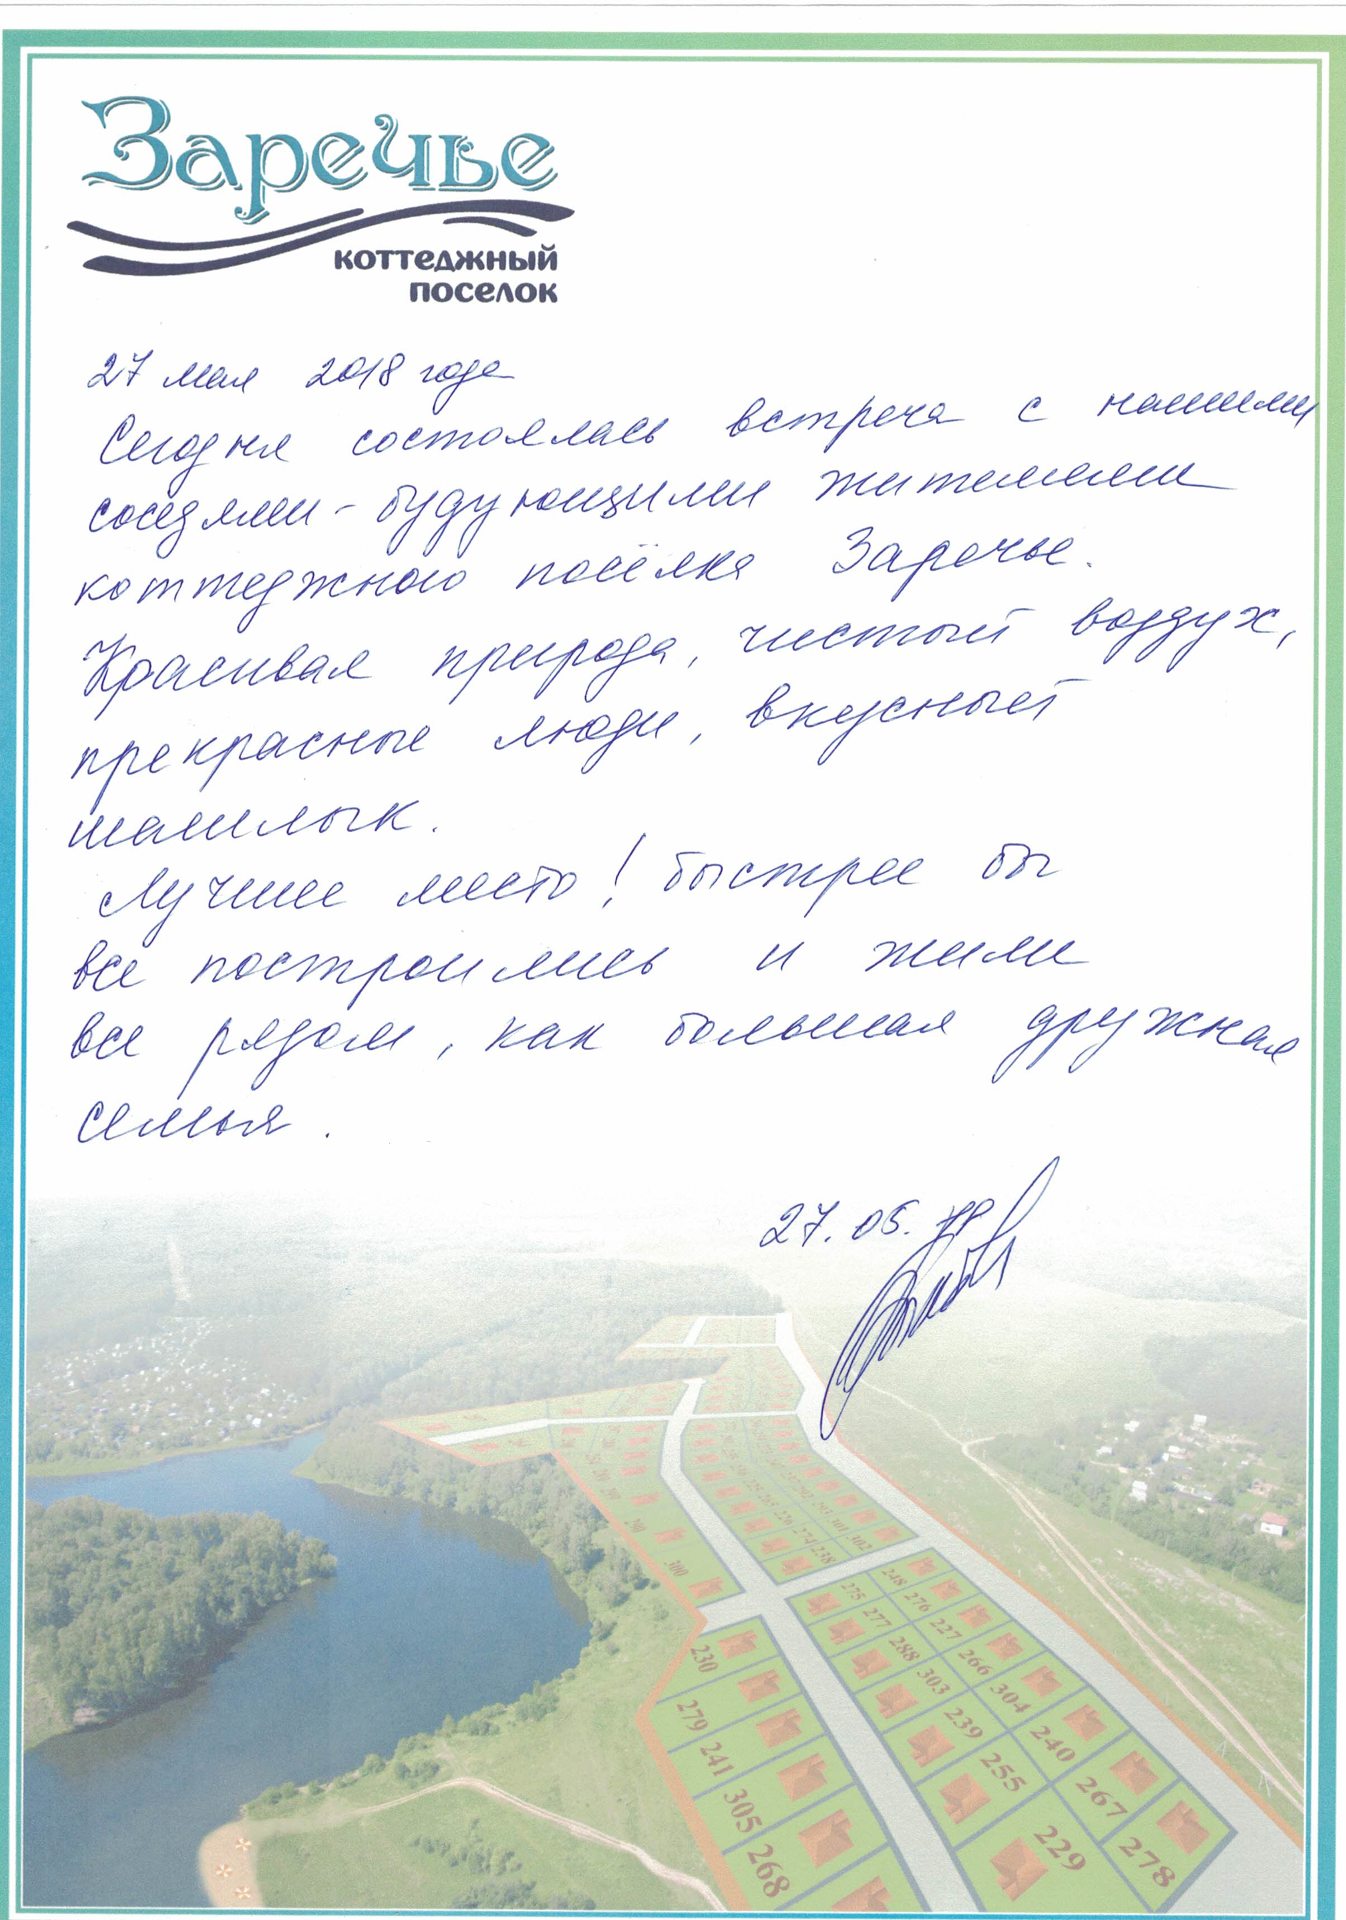 Заречье
коттеджный
поселок
27 мая 2018 года
Сегодня состоялась встреча с нашими
соседями - будующими жителями
коттеджного посёлка Заречье.
Красивая природа, чистый воздух,
прекрасные люди, вкусный
шашлык.
Лучшее место! быстрее бы
все построились и жили
все рядом, как большая дружная
семья.
27.05.
290
300
302
238
248
275
276
277
227
288
266
303
304
230
239
240
279
255
267
241
305
229
278
268